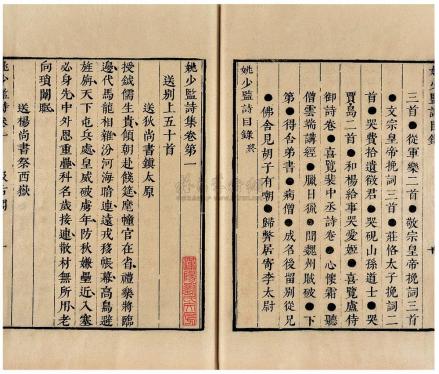 姚少監詩目錄
三首●從軍樂二首●敬宗皇帝挽詞三首
●文宗皇帝挽詞三首●莊恪太子挽詞二
首●哭費拾遺徵君●哭硯山孫道士●哭
賈島二首●和楊給事哭愛姬●喜覽盧侍
御詩卷●喜覽裴中丞詩卷●心懷霜●聽
僧雲端講經●臘日獵●聞魏州破●下
第●得台弟書●病僧●成名後留別從兄
●佛舍見胡子有嘲●歸弊居寄李太尉
姚少監詩目錄終
姚少監詩集卷第一
送別上五十首
送狄尚書鎮太原
授鉞儒生貴傾朝赴餞筵麾幢官在省禮樂將臨
邊代馬龍相雜汾河海暗連遠戎移帳幕高鳥避
旌旃天下屯兵處皇威破虜年防秋嫌壘近入塞
必身先中外恩重疊科名歲接連散材無所用老
向瑣闈眠
送楊尚書祭西嶽
姚少監詩卷一
一
汲古閣